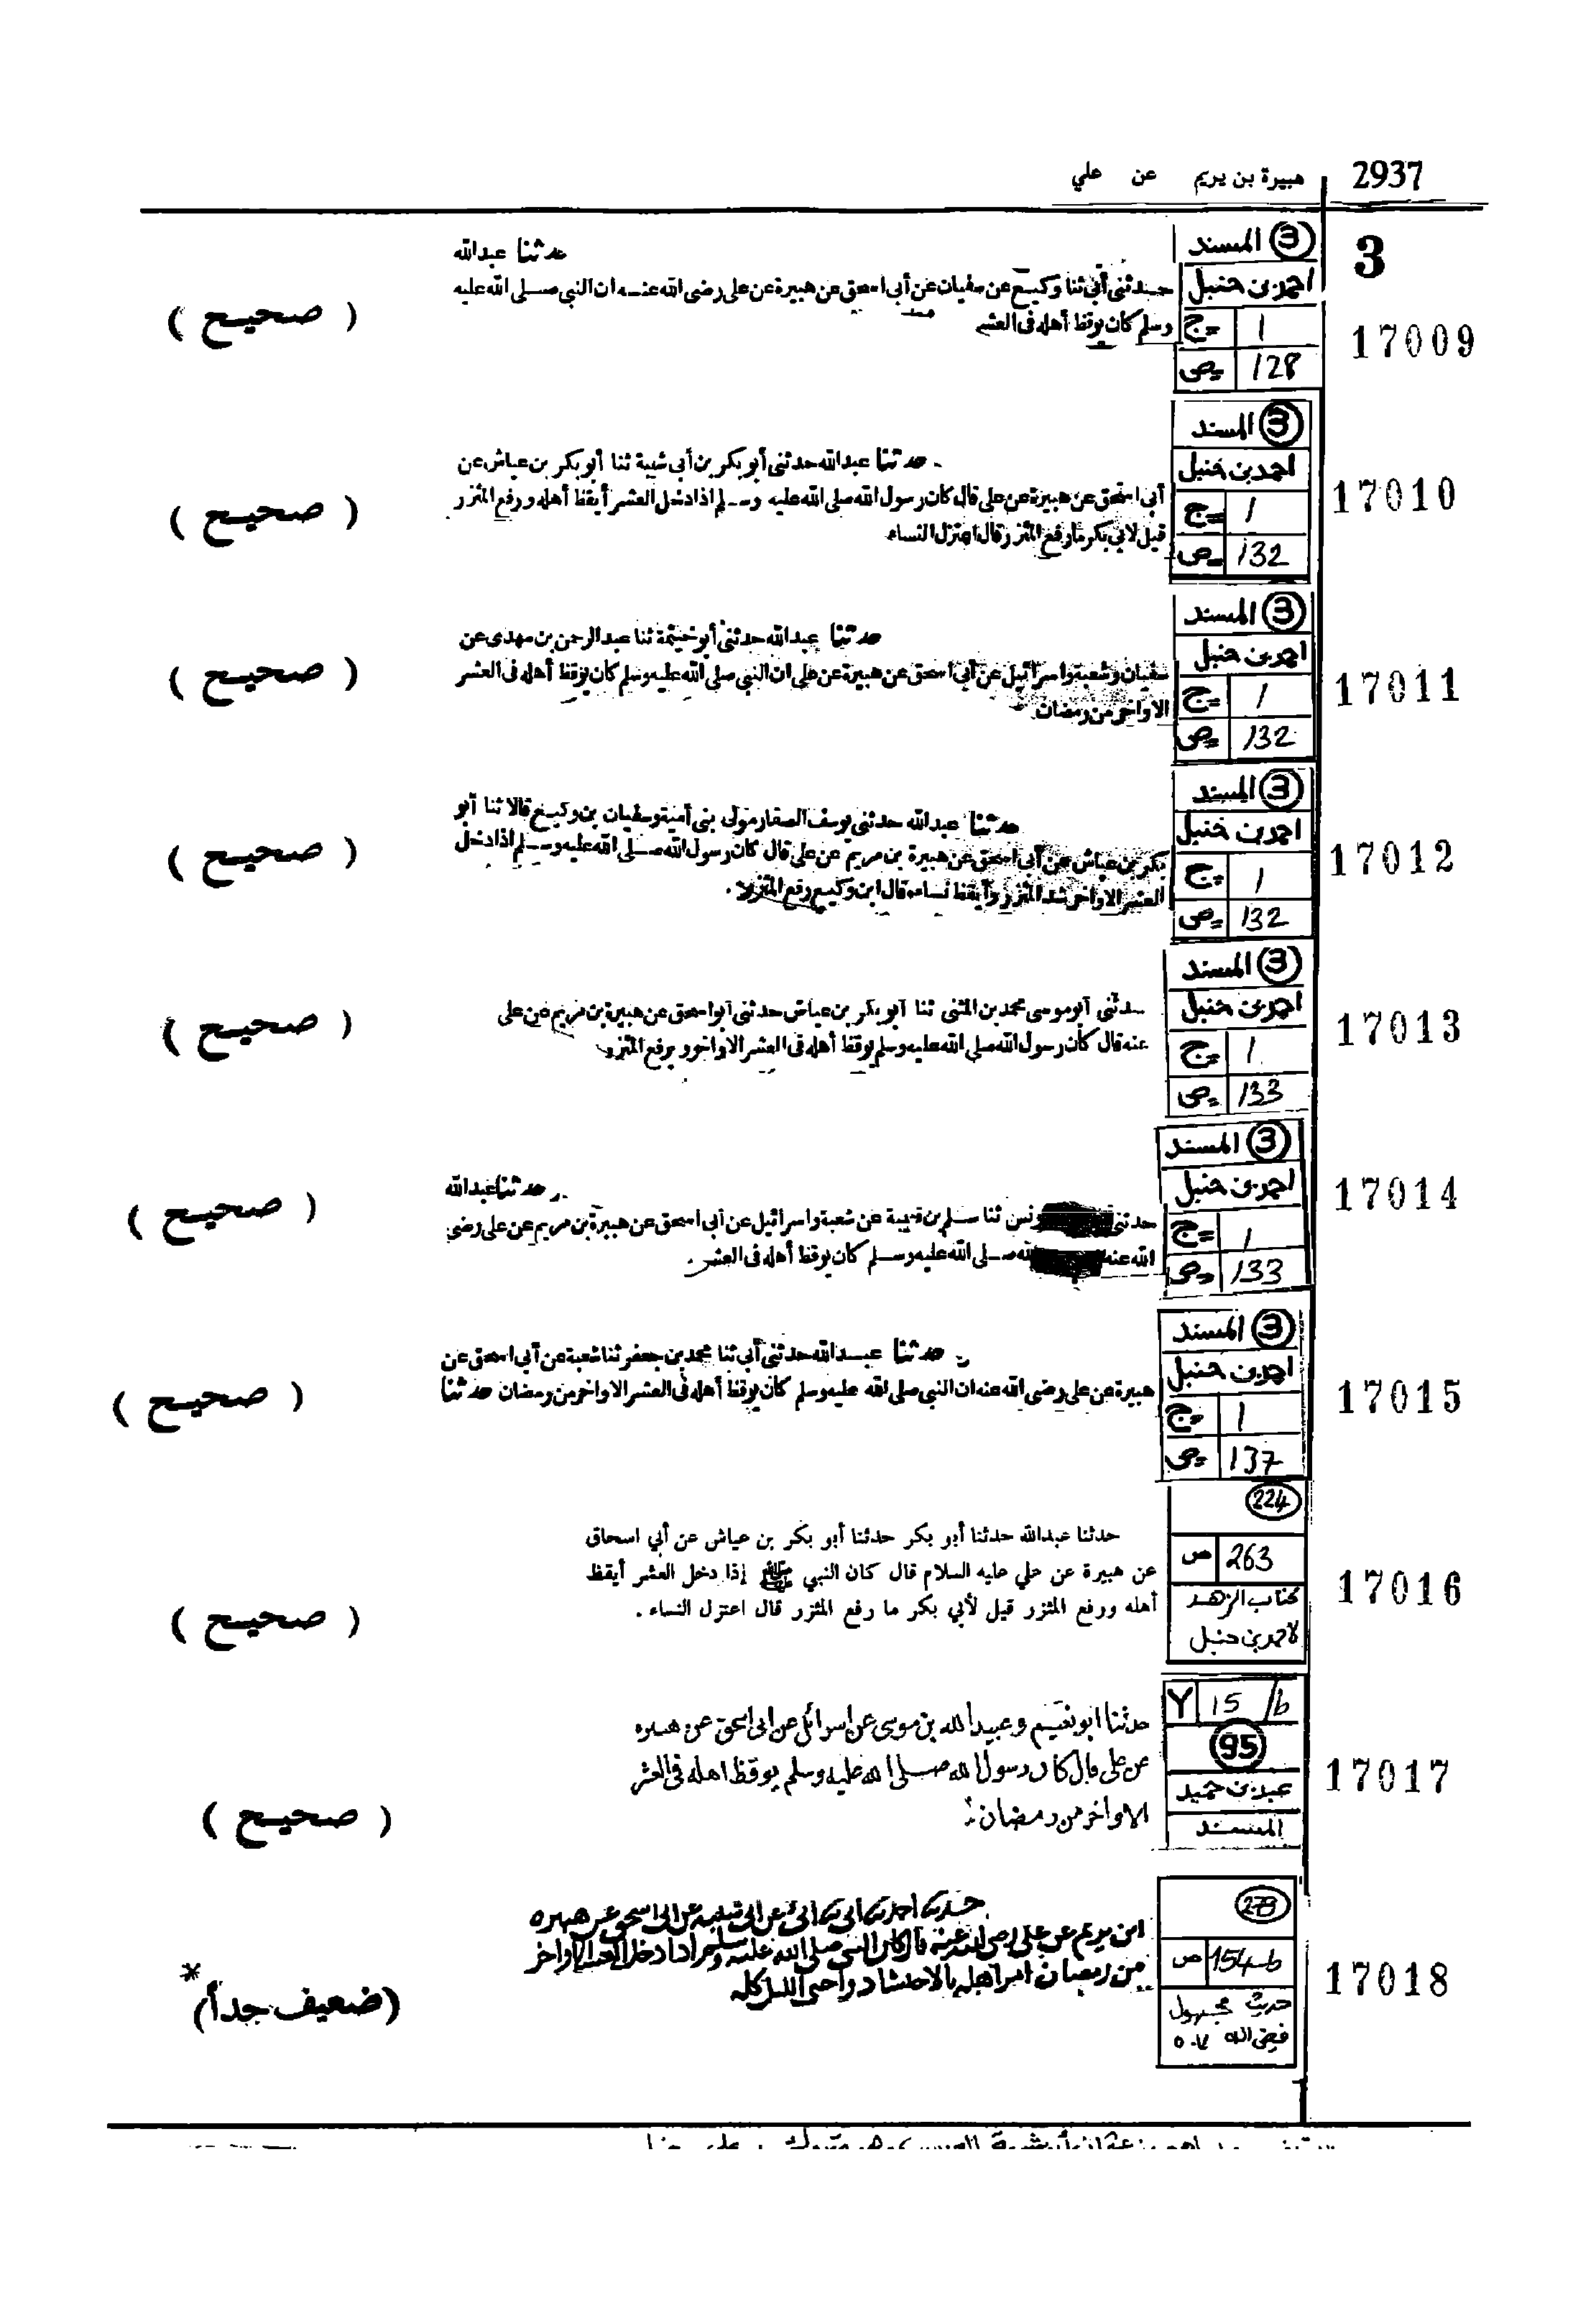 2937 هبيرة بن يريم عن علي
3
17009
③ المسند
احمد بن حنبل
ج = 1
ص = 128
حدثنا عبدالله
حدثني أبي ثنا وكيع عن سفيان عن أبي اسحق عن هبيرة عن على رضى الله عنه ان النبي صلى الله عليه
وسلم كان يوقظ أهله فى العشر
( صحيح )
17010
③ المسند
احمد بن حنبل
ج = 1
ص = 132
حدثنا عبدالله حدثنى أبو بكر بن أبى شيبة ثنا أبو بكر بن عياش عن
أبى اسحق عن هبيرة عن على قال كان رسول الله صلى الله عليه وسلم اذا دخل العشر أيقظ أهله ورفع المئزر
قيل لابى بكر ما رفع المئزر قال اعتزل النساء
( صحيح )
17011
③ المسند
احمد بن حنبل
ج = 1
ص = 132
حدثنا عبدالله حدثنى أبو خيثمة ثنا عبد الرحمن بن مهدى عن
سفيان وشعبة واسرائيل عن أبى اسحق عن هبيرة عن على ان النبى صلى الله عليه وسلم كان يوقظ أهله فى العشر
الاواخر من رمضان
( صحيح )
17012
③ المسند
احمد بن حنبل
ج = 1
ص = 132
حدثنا عبدالله حدثنى يوسف الصفار مولى بنى أمية وسفيان بن وكيع قالا ثنا أبو
بكر بن عياش عن أبى اسحق عن هبيرة بن مريم عن على قال كان رسول الله صلى الله عليه وسلم اذا دخل
العشر الاواخر شد المئزر وأيقظ نساءه قال ابن وكيع رفع المئزر
( صحيح )
17013
③ المسند
احمد بن حنبل
ج = 1
ص = 133
حدثنى أبو موسى محمد بن المثنى ثنا أبو بكر بن عياش حدثنى أبو اسحق عن هبيرة بن مريم عن على
عنه قال كان رسول الله صلى الله عليه وسلم يوقظ أهله فى العشر الاواخر ويرفع المئزر
( صحيح )
17014
③ المسند
احمد بن حنبل
ج = 1
ص = 133
حدثنا عبدالله
حدثنى ونس ثنا سلم بن قتيبة عن شعبة واسرائيل عن أبى اسحق عن هبيرة بن مريم عن على رضى
الله عنه الله صلى الله عليه وسلم كان يوقظ أهله فى العشر
( صحيح )
17015
③ المسند
احمد بن حنبل
ج = 1
ص = 137
حدثنا عبدالله حدثنى أبى ثنا محمد بن جعفر ثنا شعبة عن أبى اسحق عن
هبيرة عن على رضى الله عنه ان النبى صلى الله عليه وسلم كان يوقظ أهله فى العشر الاواخر من رمضان حدثنا
( صحيح )
17016
224
ص 263
كتاب الزهد
لاحمد بن حنبل
حدثنا عبدالله حدثنا أبو بكر حدثنا أبو بكر بن عياش عن أبي اسحاق
عن هبيرة عن علي عليه السلام قال كان النبي ﷺ إذا دخل العشر أيقظ
أهله ورفع المئزر قيل لأبي بكر ما رفع المئزر قال اعتزل النساء .
( صحيح )
17017
Y 15 / b
95
عبد بن حميد
المسند
حدثنا ابو نعيم وعبيد الله بن موسى عن اسرائل عن ابى اسحق عن هبيره
عن على قال كان رسول الله صلى الله عليه وسلم يوقظ اهله فى العشر
الاواخر من رمضان
( صحيح )
17018
279
ص 154-b
حديث مجهول
فيض الله ٥٠٧
ابن يريم عن على رضى الله عنه قال كان النبى صلى الله عليه وسلم اذا دخل العشر الاواخر
من رمضان امر اهله بالاحتشاد واحى الليل كله
(ضعيف جداً) *